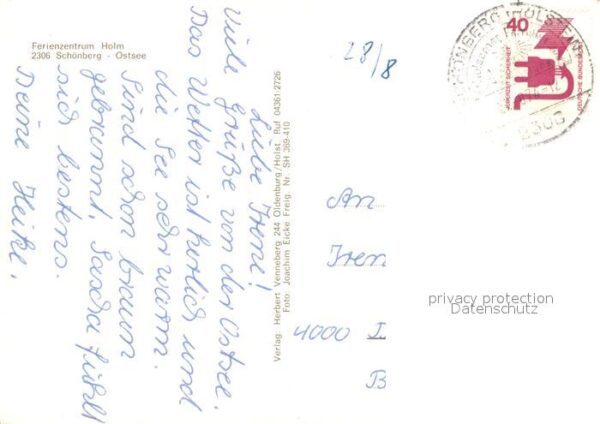 Ferienzentrum Holm
2306 Schönberg - Ostsee
28/8
Liebe Irene!
Viele grüße von der Ostsee.
Das Wetter ist herlich und
die See sehr warm.
Sind schon braun
gebrannt. Sascha fühlt
sich bestens.
Deine Heike.
Verlag Herbert Venneberg 244 Oldenburg/Holst. Ruf 04361-2726
Foto: Joachim Eicke Freig. Nr. SH 369-410
An
Iren
4000
B
40
JEDERZEIT SICHERHEIT
DEUTSCHE BUNDESPOST
SCHÖNBERG (HOLSTEIN)
2306
privacy protection
Datenschutz